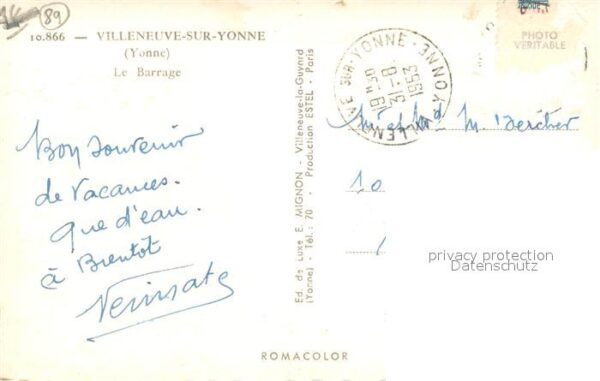 89
10.866 — VILLENEUVE-SUR-YONNE
(Yonne)
Le Barrage
Bon souvenir
de vacances.
que d'eau.
à Bientôt
Ed. de Luxe E. MIGNON - Villeneuve-la-Guyard
(Yonne) - Tél.: 70 - Production ESTEL - Paris
ROMACOLOR
SUR-YONNE - YONNE
19H30
31-8
1953
PHOTO
VERITABLE
M et Md M.
10
privacy protection
Datenschutz